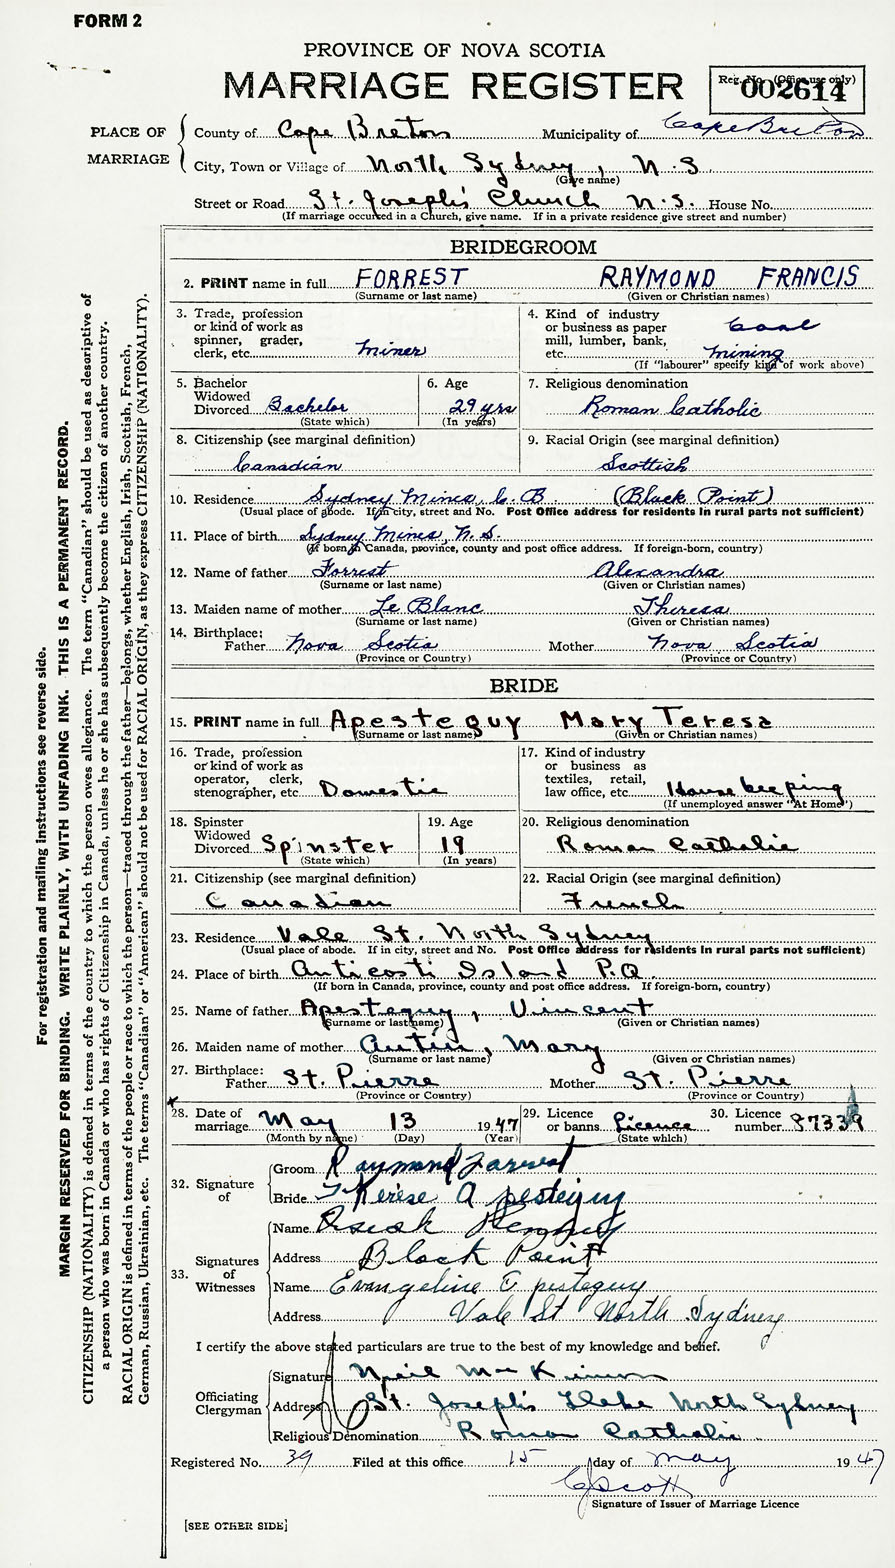 FORM 2
PROVINCE OF NOVA SCOTIA
MARRIAGE REGISTER
Reg. No. (Office use only)
002614
PLACE OF MARRIAGE
County of Cape Breton Municipality of Cape Breton
City, Town or Village of North Sydney, N.S.
(Give name)
Street or Road St. Joseph's Church N.S. House No.
(If marriage occurred in a Church, give name. If in a private residence give street and number)
BRIDEGROOM
2. PRINT name in full FORREST RAYMOND FRANCIS
(Surname or last name) (Given or Christian names)
3. Trade, profession or kind of work as spinner, grader, clerk, etc. Miner
4. Kind of industry or business as paper mill, lumber, bank, etc. Coal Mining
(If "labourer" specify kind of work above)
5. Bachelor Widowed Divorced Bachelor
(State which)
6. Age 29 yrs
(In years)
7. Religious denomination Roman Catholic
8. Citizenship (see marginal definition) Canadian
9. Racial Origin (see marginal definition) Scottish
10. Residence Sydney Mines, C.B (Black Point)
(Usual place of abode. If in city, street and No. Post Office address for residents in rural parts not sufficient)
11. Place of birth Sydney Mines, N.S.
(If born in Canada, province, county and post office address. If foreign-born, country)
12. Name of father Forrest Alexandra
(Surname or last name) (Given or Christian names)
13. Maiden name of mother Le Blanc Theresa
(Surname or last name) (Given or Christian names)
14. Birthplace: Father Nova Scotia Mother Nova Scotia
(Province or Country) (Province or Country)
BRIDE
15. PRINT name in full Apesteguy Mary Teresa
(Surname or last name) (Given or Christian names)
16. Trade, profession or kind of work as operator, clerk, stenographer, etc. Domestic
17. Kind of industry or business as textiles, retail, law office, etc. Housekeeping
(If unemployed answer "At Home")
18. Spinster Widowed Divorced Spinster
(State which)
19. Age 19
(In years)
20. Religious denomination Roman Catholic
21. Citizenship (see marginal definition) Canadian
22. Racial Origin (see marginal definition) French
23. Residence Vale St. North Sydney
(Usual place of abode. If in city, street and No. Post Office address for residents in rural parts not sufficient)
24. Place of birth Anticosti Island P.Q.
(If born in Canada, province, county and post office address. If foreign-born, country)
25. Name of father Apesteguy, Vincent
(Surname or last name) (Given or Christian names)
26. Maiden name of mother Autin, Mary
(Surname or last name) (Given or Christian names)
27. Birthplace: Father St. Pierre Mother St. Pierre
(Province or Country) (Province or Country)
28. Date of marriage May 13 1947
(Month by name) (Day) (Year)
29. Licence or banns Licence
(State which)
30. Licence number 87339
32. Signature of
Groom Raymond Forrest
Bride Therese Apesteguy
33. Signatures of Witnesses
Name
Address Black Point
Name Evangeline Epesteguy
Address Vale St North Sydney
I certify the above stated particulars are true to the best of my knowledge and belief.
Officiating Clergyman
Signature Neil MacKinnon
Address St. Joseph's Glebe North Sydney
Religious Denomination Roman Catholic
Registered No. 39 Filed at this office 15 day of May 1947
C Scott
Signature of Issuer of Marriage Licence
[SEE OTHER SIDE]
For registration and mailing instructions see reverse side.
MARGIN RESERVED FOR BINDING. WRITE PLAINLY, WITH UNFADING INK. THIS IS A PERMANENT RECORD.
CITIZENSHIP (NATIONALITY) is defined in terms of the country to which the person owes allegiance. The term "Canadian" should be used as descriptive of
a person who was born in Canada or who has rights of Citizenship in Canada, unless he or she has subsequently become the citizen of another country.
RACIAL ORIGIN is defined in terms of the people or race to which the person—traced through the father—belongs, whether English, Irish, Scottish, French,
German, Russian, Ukrainian, etc. The terms "Canadian" or "American" should not be used for RACIAL ORIGIN, as they express CITIZENSHIP (NATIONALITY).